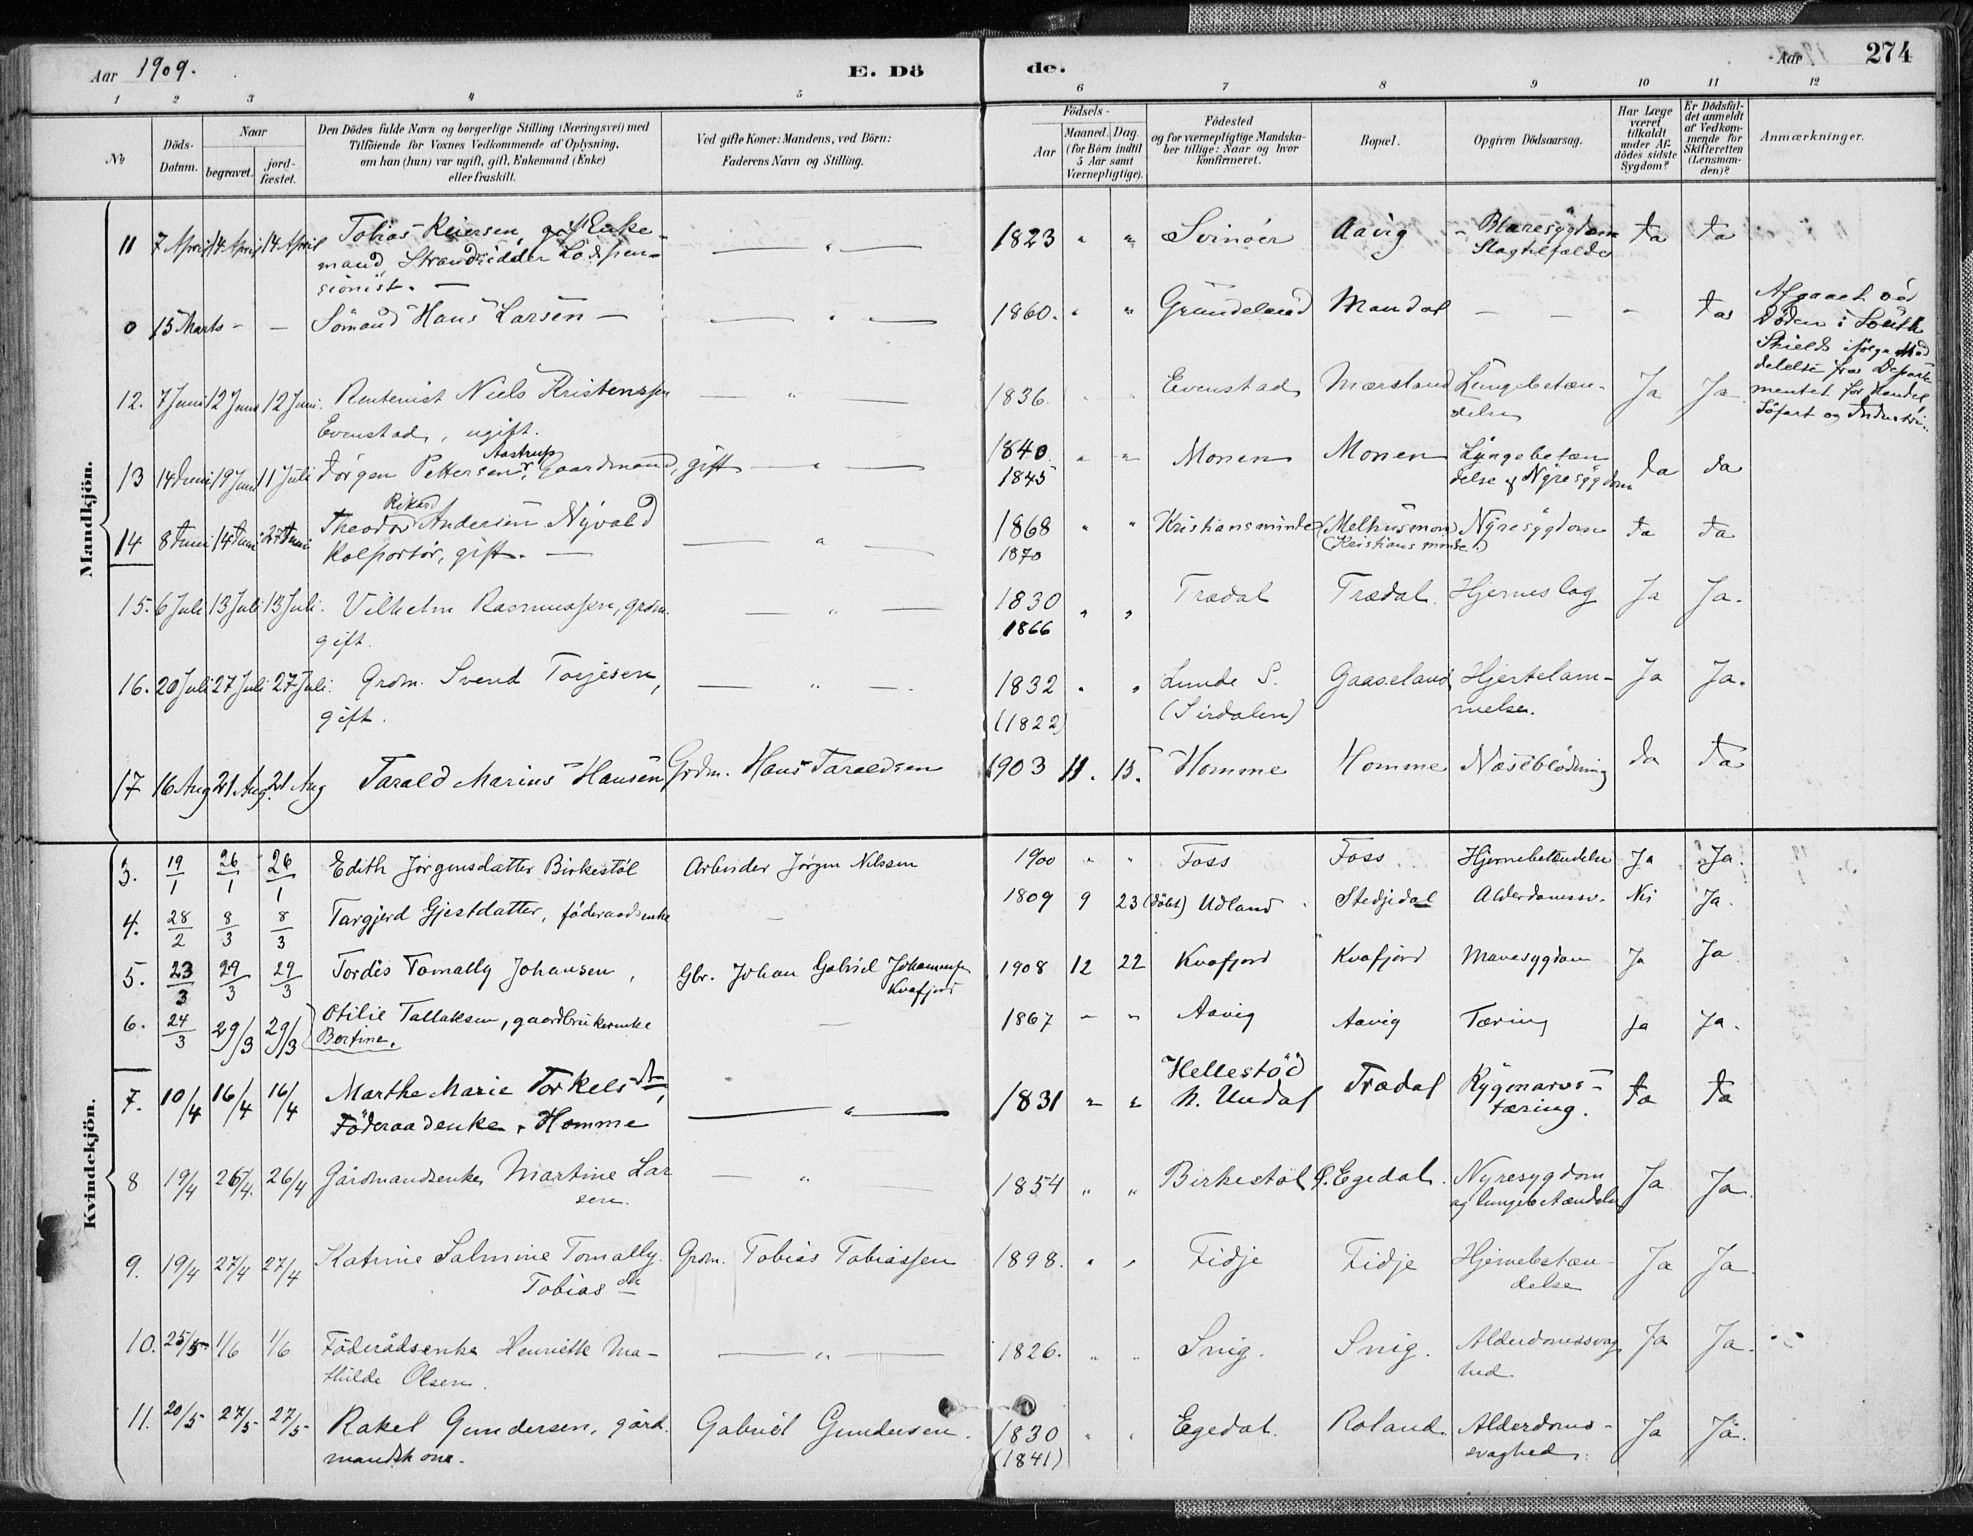 Aar 1909. E. Dö de. Aar 274
1 2 3 4 5 6 7 8 9 10 11 12
No
Döds-Datum.
Naar
begravet.
jord-fæstet.
Den Dödes fulde Navn og borgerlige Stilling (Næringsvei) med
Tilföiende for Voxnes Vedkommende af Oplysning,
om han (hun) var ugift, gift, Enkemand (Enke)
eller fraskilt.
Ved gifte Koner: Mandens, ved Börn:
Faderens Navn og Stilling.
Födsels-
Aar
Maaned. Dag.
(for Börn indtil
5 Aar samt
Værnepligtige).
Födested
og for værnepligtige Mandska-
ber tillige: Naar og hvor
konfirmeret.
Bopæl.
Opgiven Dödsaarsag.
Har Læge
været
tilkaldt
under Af-
dödes sidste
Sygdom?
Er Dödsfal-
det anmeldt
af Vedkom-
mende for
Skifteretten
(Lensman-
den)?
Anmærkninger.
Mandkjön.
11 7 April 14 April 14 April Tobias Reiersen, gift Enke- — " — 1823 " " Svinöer Aavig Blæresygdom Ja Ja
mand, Strandsidder Lodspen- Slagtilfælde
sionist. —
0 15 Marts - — Sömand Hans Larsen — — " — 1860. " " Grundeland Mandal — — — Ja Afgaaet ved
Döden i South
Shields ifölge Med
delelse fra Departe
mentet for Handel,
Söfart og Industri.
12. 7 Juni 12 Juni 12 Juni. Rentenist Niels Kristenssen — " — 1836. Evenstad Mærsland Lungebetæn- Ja Ja
Evenstad, ugift. delse
13 14 Juni 19 Juni 11 Juli Jörgen Pettersen Aastrup Gaardmand, gift — " — 1840 " " Monen Monen Lungebetæn Ja Ja
1845 delse & Nyresygdom
14 8 Juni 14 Juni 27 Juni Theodor Rikard Andersen Nyvold — " — 1868 " " Kristiansminde (Melhusmon) Nyresygdom Ja Ja
Kolportör, gift. — 1870 (Kristiansminde)
15. 6 Juli 13 Juli 13 Juli. Vilhelm Rasmussen, grdm. — " — 1830 " " Trædal Trædal. Hjerneslag Ja Ja.
gift. 1866
16. 20 Juli 27 Juli 27 Juli. Grdm. Svend Torjesen, — " — 1832 " " Lunde S. Gaaseland Hjertelam- Ja Ja.
gift. (1822) (Sirdalen) melse.
17 16 Aug 21 Aug. 21 Aug Tarald Marius Hansen Grdm. Hans Taraldsen 1903 11. 15. Homme Homme Næseblödning Ja Ja
Kvindekjön.
3. 19/1 26/1 26/1 Edith Jörgensdatter Birkestöl Arbeider Jörgen Nilssen 1900 " " Foss Foss Hjernebetændelse Ja Ja.
4. 28/2 8/3 8/3 Targjerd Gjestdatter, föderaadsenke — 1809 9 23 (döbt) Udland Stedjedal Alderdomssv. Nei Ja.
5. 23/3 29/3 29/3 Tordis Tomally Johansen, Gbr. Johan Gabriel Johannesen 1908 12 22 Kvafjord Kvafjord Mavesygdom Ja Ja
Kvafjord
6. 24/3 29/3 29/3 Otilie Tallaksen, gaardbrukerenke — 1867 " " Aavig Aavig Tæring Ja Ja.
Bertine.
7. 10/4 16/4 16/4 Marthe Marie Torkelsdtr, — " — 1831 " " Hellestöd Trædal Rygmarvs- Ja Ja
Föderaadenke, Homme N. Undal tæring.
8 19/4 26/4. 26/4 Gårdmandsenke Martine Lar — " — 1854 " " Birkestöl Ö. Egedal. Nyresygdom Ja Ja.
sen. og lungebetændelse
9. 19/4 27/4 27/4 Katrine Salmine Tomally. Grdm. Tobias Tobiassen 1898. " " Fidje Fidje Hjernebetæn- Ja Ja
Tobiasdtr delse
10. 25/5 1/6 1/6 Föderådsenke Henriette Ma- — " — 1826. " " Snig. Snig. Alderdomssvag Ja Ja.
thilde Olsen. hed.
11. 20/5 27/5 27/5 Rakel Gundersen, gård Gabriel Gundersen. 1830 " " Egedal. Roland. Alderdoms- Ja Ja.
mandskone. (1841) svaghed.